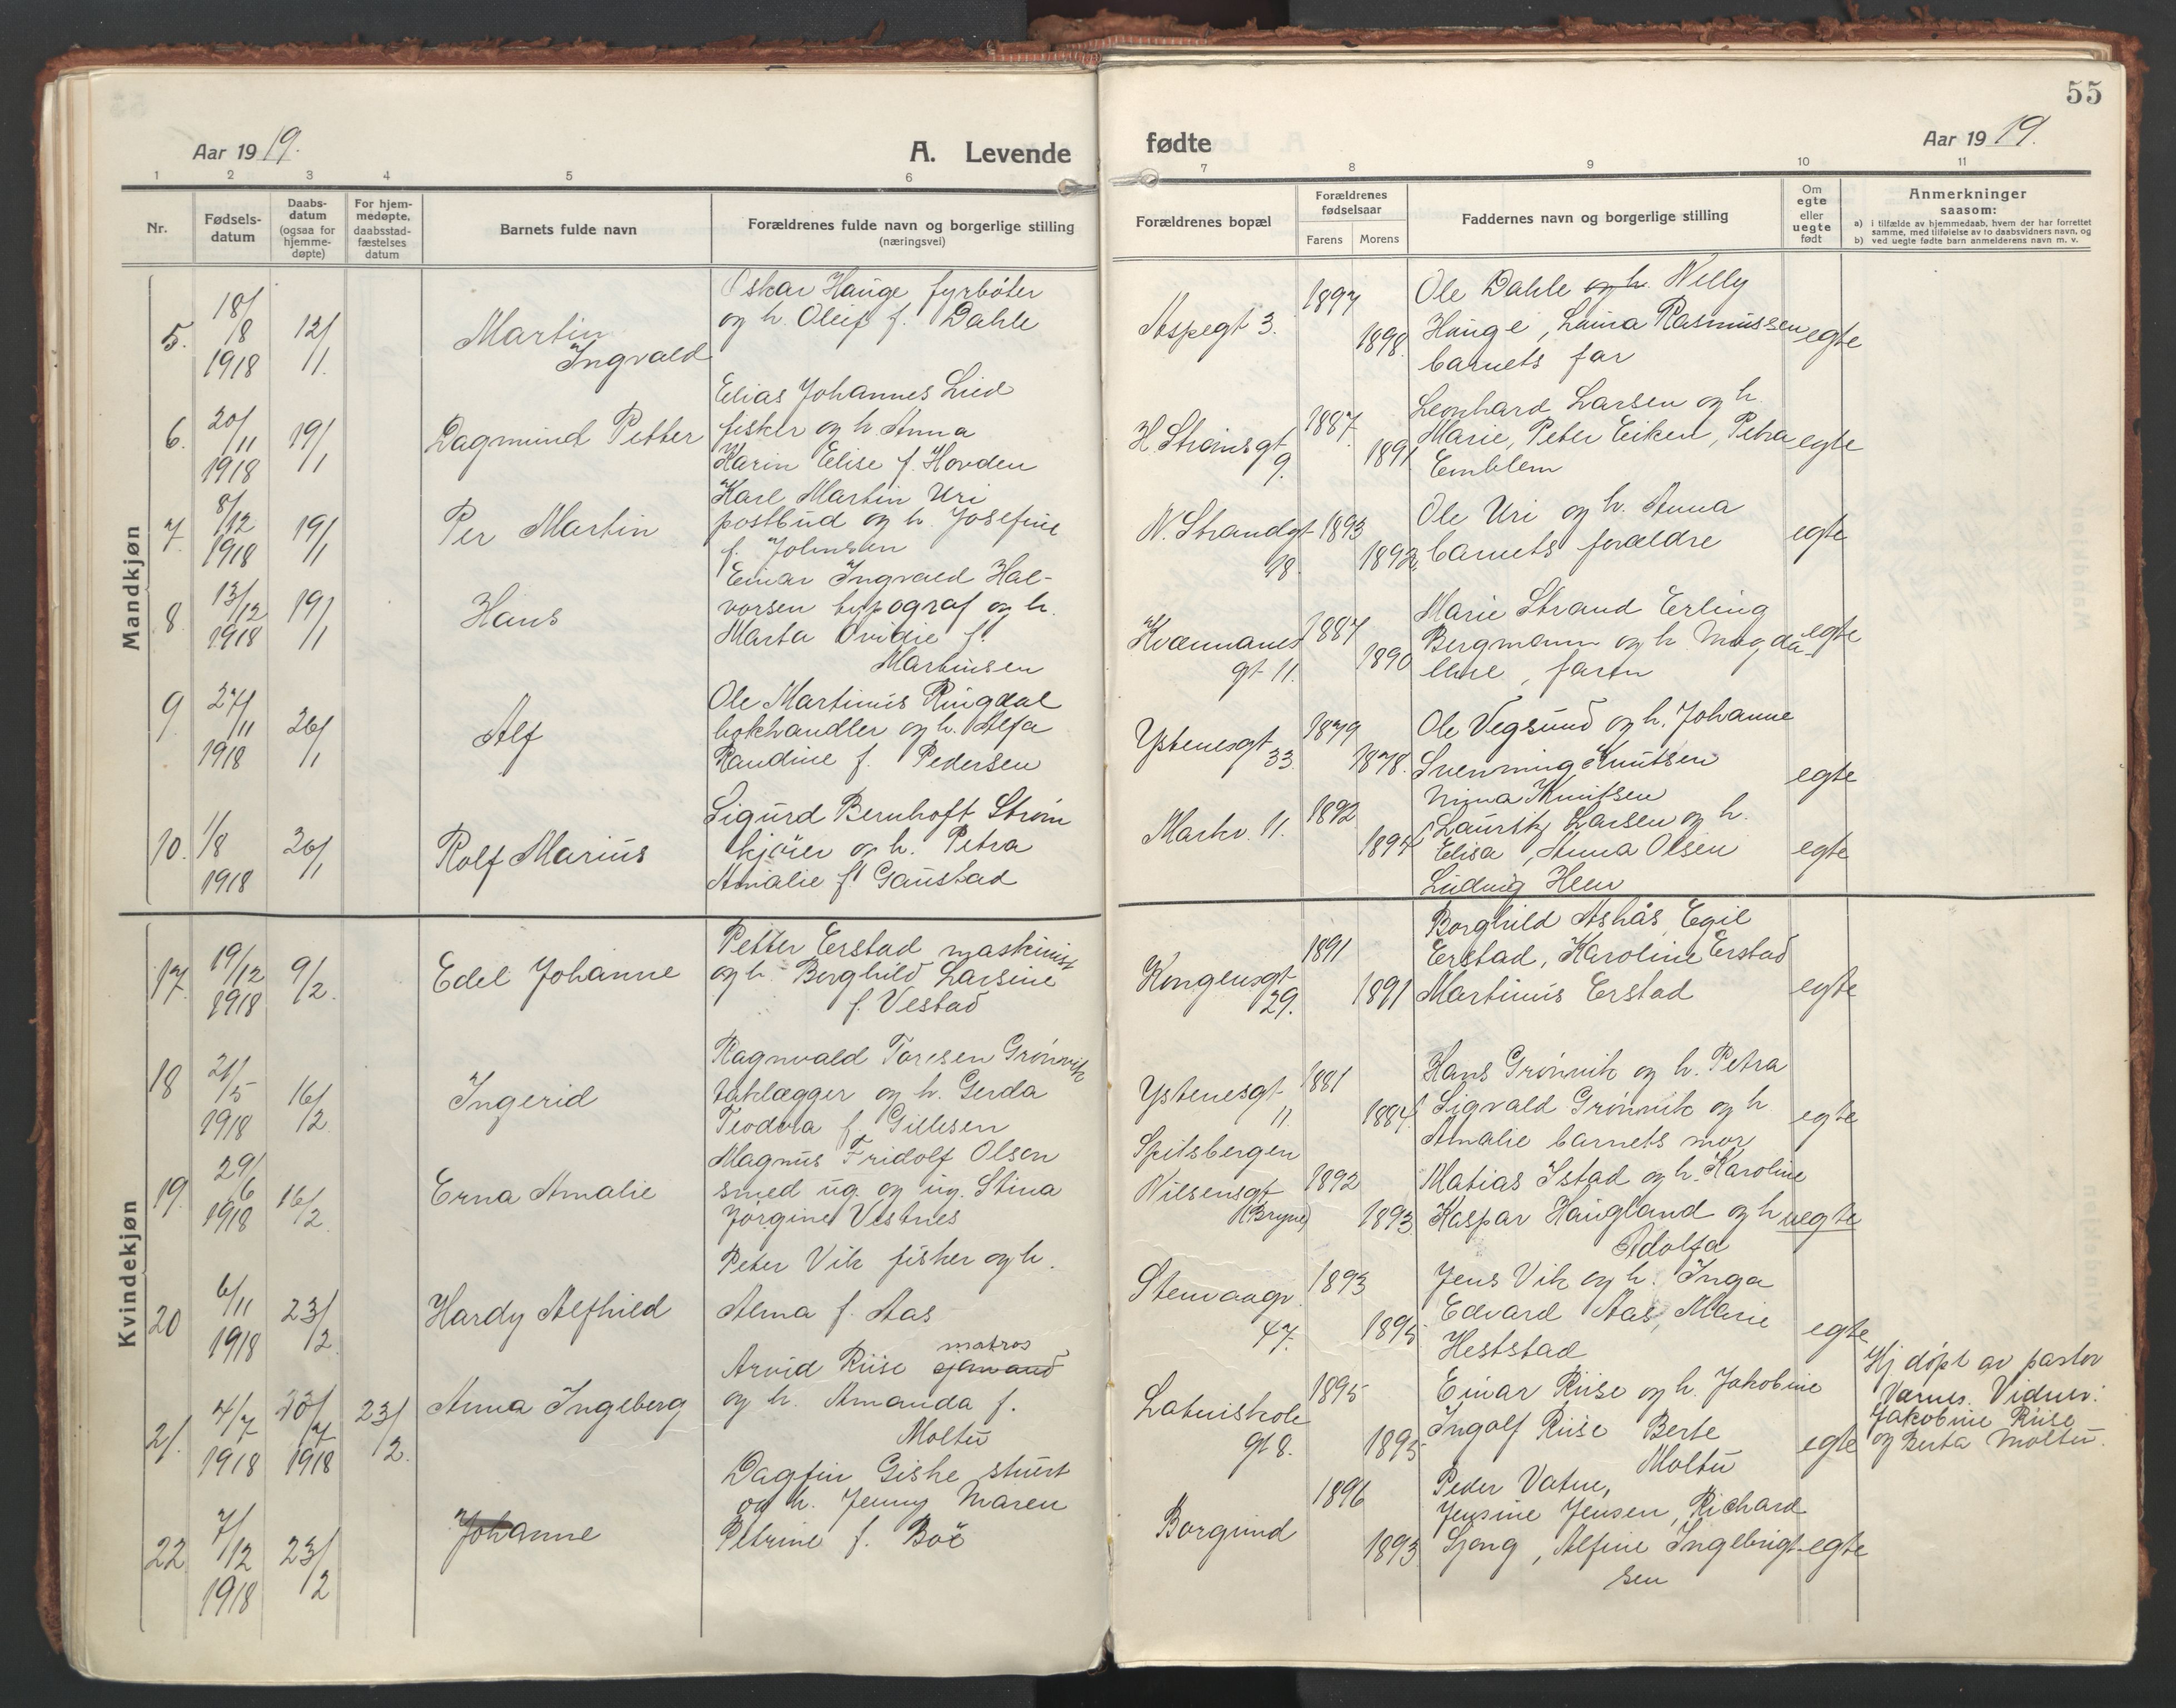 55
Aar 1919.
A. Levende
fødte
Aar 1919.
1 2 3 4 5 6 7 8 9 10 11
Nr.
Fødsels-
datum
Daabs-
datum
(ogsaa for
hjemme-
døpte)
For hjem-
medøpte,
daabsstad-
fæstelses
datum
Barnets fulde navn
Forældrenes fulde navn og borgerlige stilling
(næringsvei)
Forældrenes bopæl
Forældrenes
fødselsaar
Farens Morens
Faddernes navn og borgerlige stilling
Om
egte
eller
uegte
født
Anmerkninger
saasom:
a) i tilfælde av hjemmedaab, hvem der har forrettet
samme, med tilføielse av to daabsvidners navn, og
b) ved uegte fødte barn anmelderens navn m. v.
Mandkjøn
5. 18/8 1918 12/1.
Martin
Ingvald
Oskar Hauge fyrbøter
og h. Oleif f. Dahle
Aspegt 3.
1897
1898.
Ole Dahle og h. Nelly
Hauge, Laura Rasmussen
barnets far
egte
6. 20/11 1918 19/1
Dagmund Petter
Elias Johannes Lied
fisker og h. Anna
Karin Elise f. Hovden
H. Strømsgt
9.
1887.
1891
Leonhard Larsen og h.
Marie, Peter Eiken, Petra
Emblem
egte
7. 8/12 1918 19/1
Per Martin
Karl Martin Uri
postbud og h. Josefine
f. Johnsen
N. Strandgt
48.
1893
1892,
Ole Uri og h. Anna
barnets forældre
egte
8. 13/12 1918 19/1
Hans
Einar Ingvald Hal-
vorsen typograf og h.
Marta Ovidie f.
Martinsen
Kvennanes
gt 11.
1887
1890
Marie Strand Erling
Bergmann og h. Magda-
lene, faren
egte
9. 27/11 1918 26/1
Alf
Ole Martinus Ringdal
bokhandler og h. Alfa
Randine f. Pedersen
Ystenesgt
33.
1879
1878.
Ole Vegsund og h. Johanne
Svenning Knutsen
Nima Knutsen
egte
10. 1/8 1918 26/1
Rolf Marius
Sigurd Bernhoft Strøm
kjører og h. Petra
Amalie f. Gaustad
Markv. 11.
1892
1894
Lauritz Larsen og h.
Elisa, Anna Olsen
Ludvig Heen
egte
Kvindekjøn
17. 19/12 1918 9/2.
Edel Johanne
Petter Erstad maskinist
og h. Borghild Larsine
f. Vestad
Kongensgt
29.
1891
1891
Borghild Ashås, Egil
Erstad, Karoline Erstad
Martinus Erstad
egte
18 21/5 1918 16/2
Ingerid
Ragnvald Toresen Grønnvik
taklægger og h. Gerda
Teodora f. Gillesen
Ystenesgt
11.
1881
1884.
Hans Grønvik og h. Petra
Sigvald Grønnvik og h
Amalie barnets mor
egte
19. 29/6 1918 16/2.
Erna Amalie
Magnus Fridolf Olsen
smed ug. og ug. Stina
Jørgine Vestnes
Spitsbergen
Nilsensgt
(Bryne)
1892
1893
Matias Istad og h. Karoline
Kaspar Haugland og h
Adolfa
uegte
20 6/11 1918 23/2.
Hardy Alfhild
Peter Vik fisker og h.
Alma f. Aas
Stenvaagv.
47.
1893
1895
Jens Vik og h. Inga
Edvard Aas, Marie
Heststad
egte
21. 4/7 1918 23/7 1918 23/2.
Anna Ingeberg
matros
Arvid Riise sjømand
og h. Amanda f.
Moltu
Latinskole
gt 8.
1895
1895
Einar Riise og h. Jakobine
Ingolf Riise Berte
Moltu
egte
Hj døpt av pastor
Varnes. Vidner:
Jakobine Riise
og Berta Moltu.
22 7/12 1918 23/2
Johanne
Dagfin Giske stuert
og h. Jenny Maren
Petrine f. Böe
Borgund
1896
1893
Peder Vatne,
Jensine Jensen, Richard
Sjong, Alfine Ingebrigt-
sen
egte